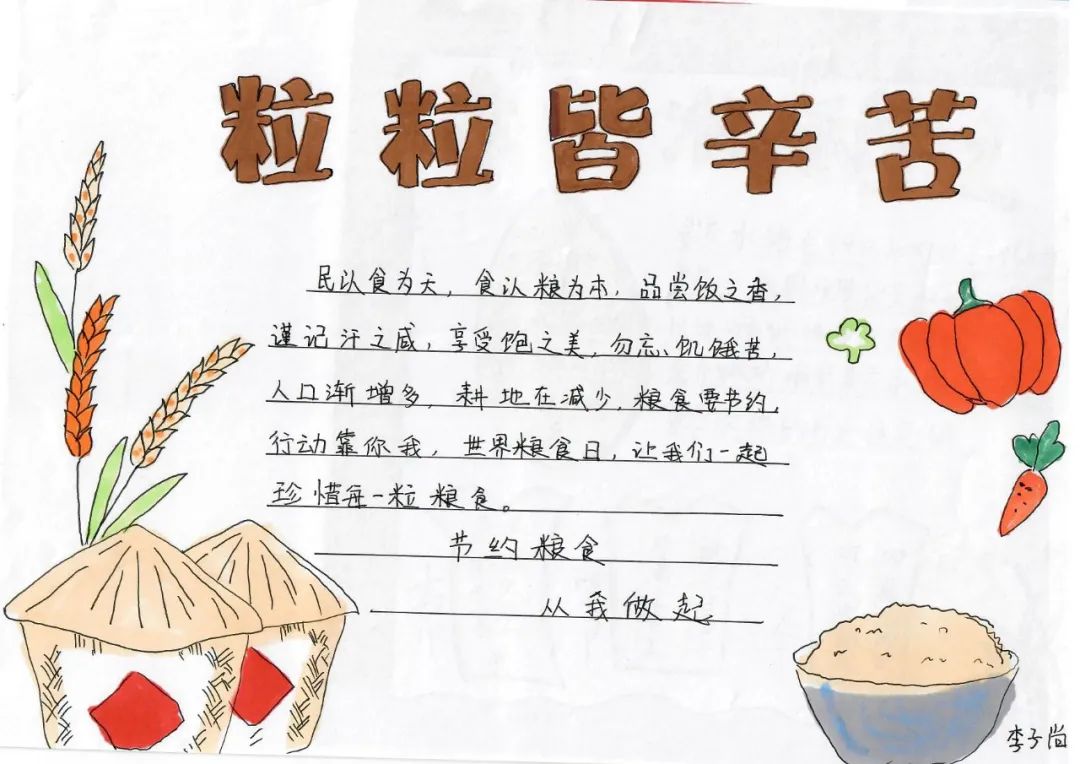 粒粒皆辛苦
民以食为天，食以粮为本，品尝饭之香，
谨记汗之咸，享受饱之美，勿忘、饥饿苦，
人口渐增多，耕地在减少，粮食要节约，
行动靠你我，世界粮食日，让我们一起
珍惜每一粒粮食。
节约粮食
从我做起
李子尚